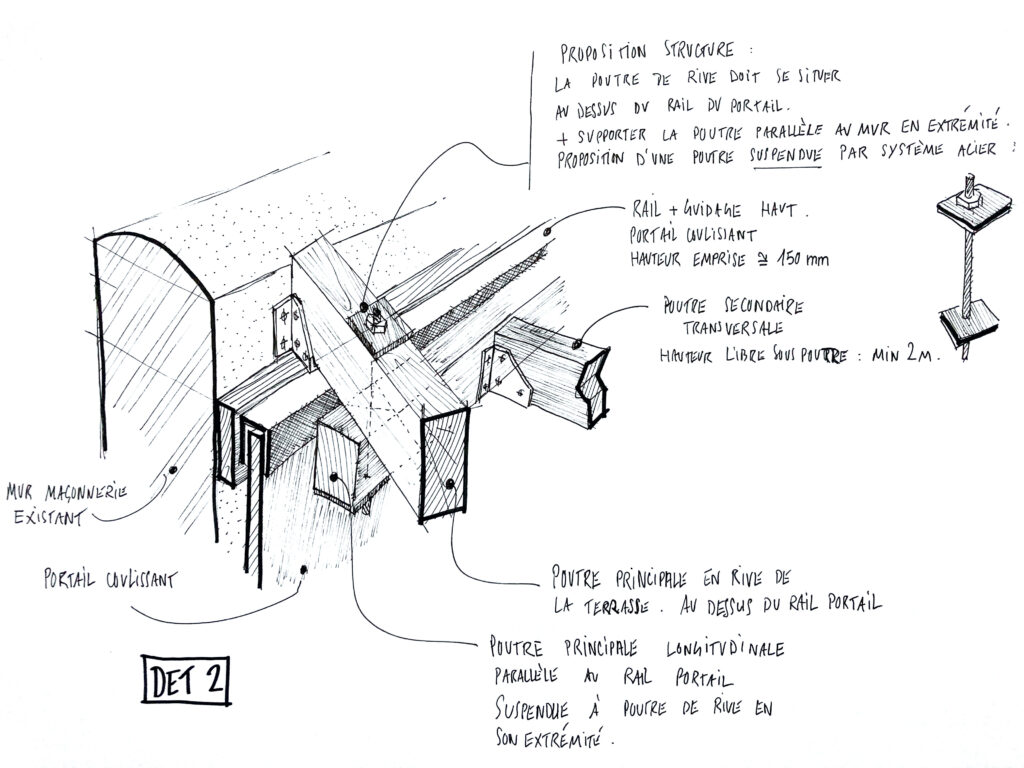 PROPOSITION STRUCTURE :
LA POUTRE DE RIVE DOIT SE SITUER
AU DESSUS DU RAIL DU PORTAIL.
+ SUPPORTER LA POUTRE PARALLÈLE AU MUR EN EXTRÉMITÉ.
PROPOSITION D'UNE POUTRE SUSPENDUE PAR SYSTÈME ACIER :
RAIL + GUIDAGE HAUT.
PORTAIL COULISSANT
HAUTEUR EMPRISE ≅ 150 mm
POUTRE SECONDAIRE
TRANSVERSALE
HAUTEUR LIBRE SOUS POUTRE : MIN 2M.
MUR MAÇONNERIE
EXISTANT
PORTAIL COULISSANT
POUTRE PRINCIPALE EN RIVE DE
LA TERRASSE. AU DESSUS DU RAIL PORTAIL
POUTRE PRINCIPALE LONGITUDINALE
PARALLÈLE AU RAIL PORTAIL
SUSPENDUE À POUTRE DE RIVE EN
SON EXTRÉMITÉ.
DET 2